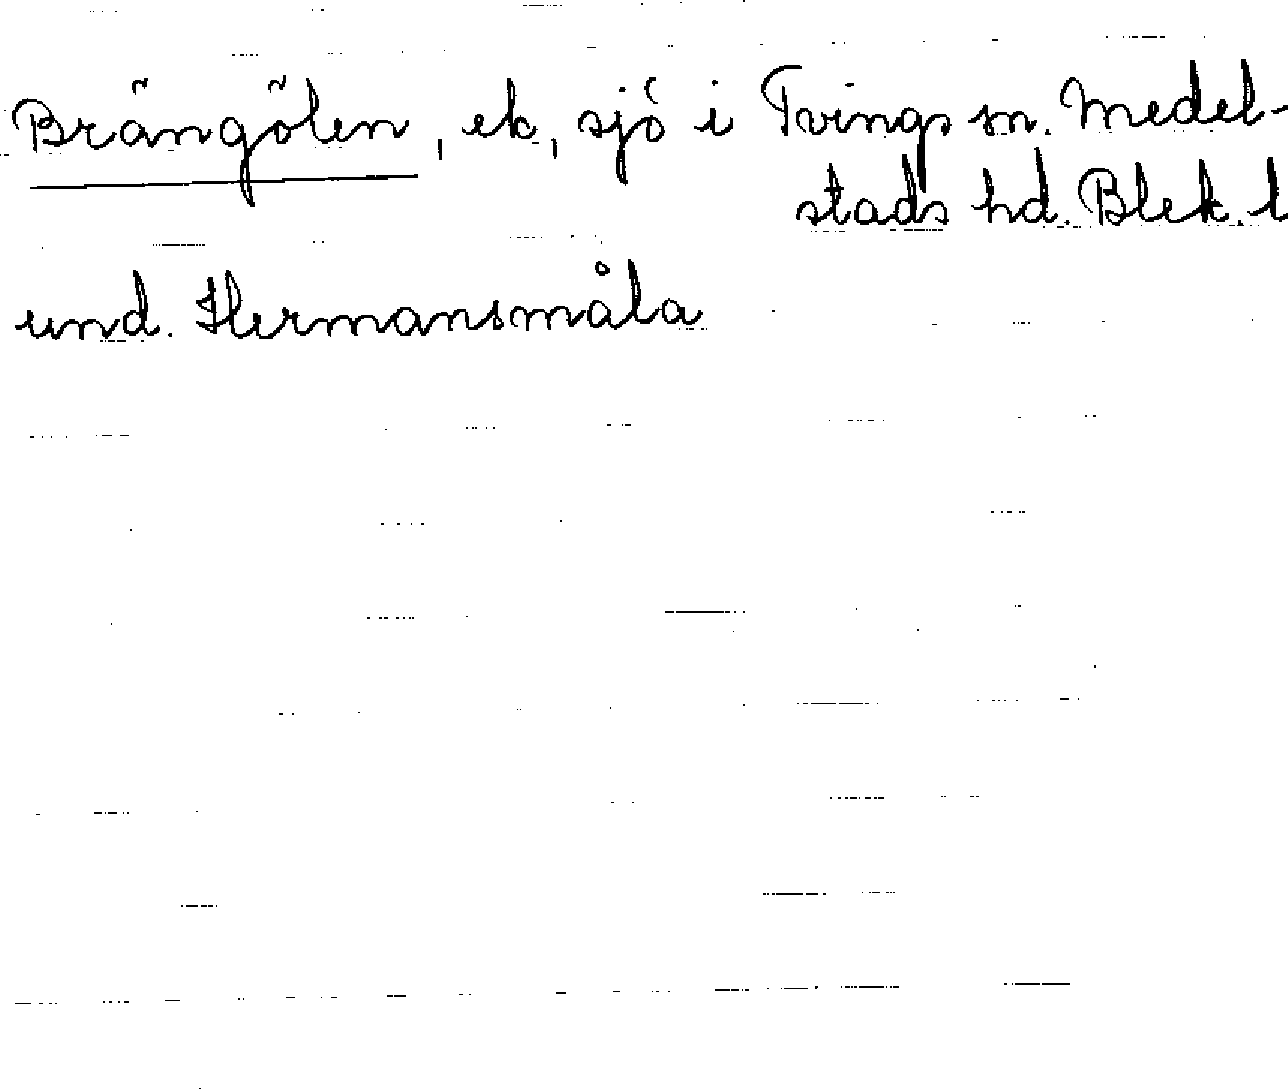 Brängölen, ek, sjö i Tvings sn. Medel-
stads hd. Blek. l
und. Hermansmåla